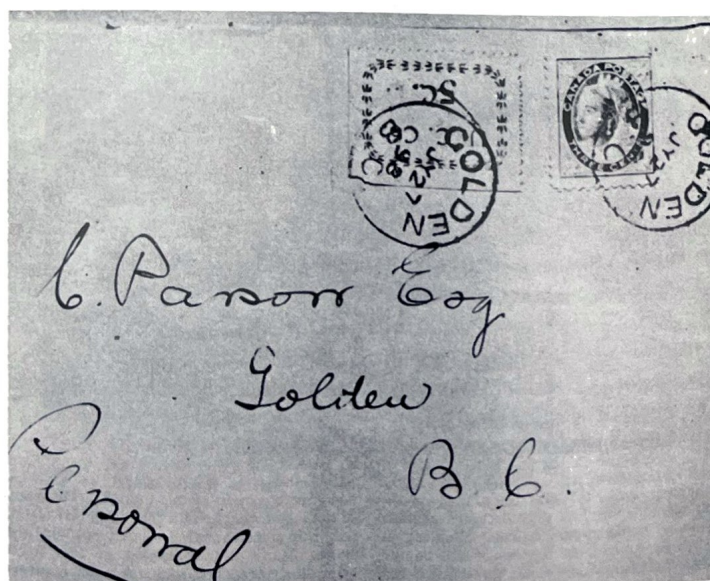 GOLDEN
JY 27
98
CANADA POSTAGE
GOLDEN
JY 27
C. Parson Esq
Golden
B. C.
Personal